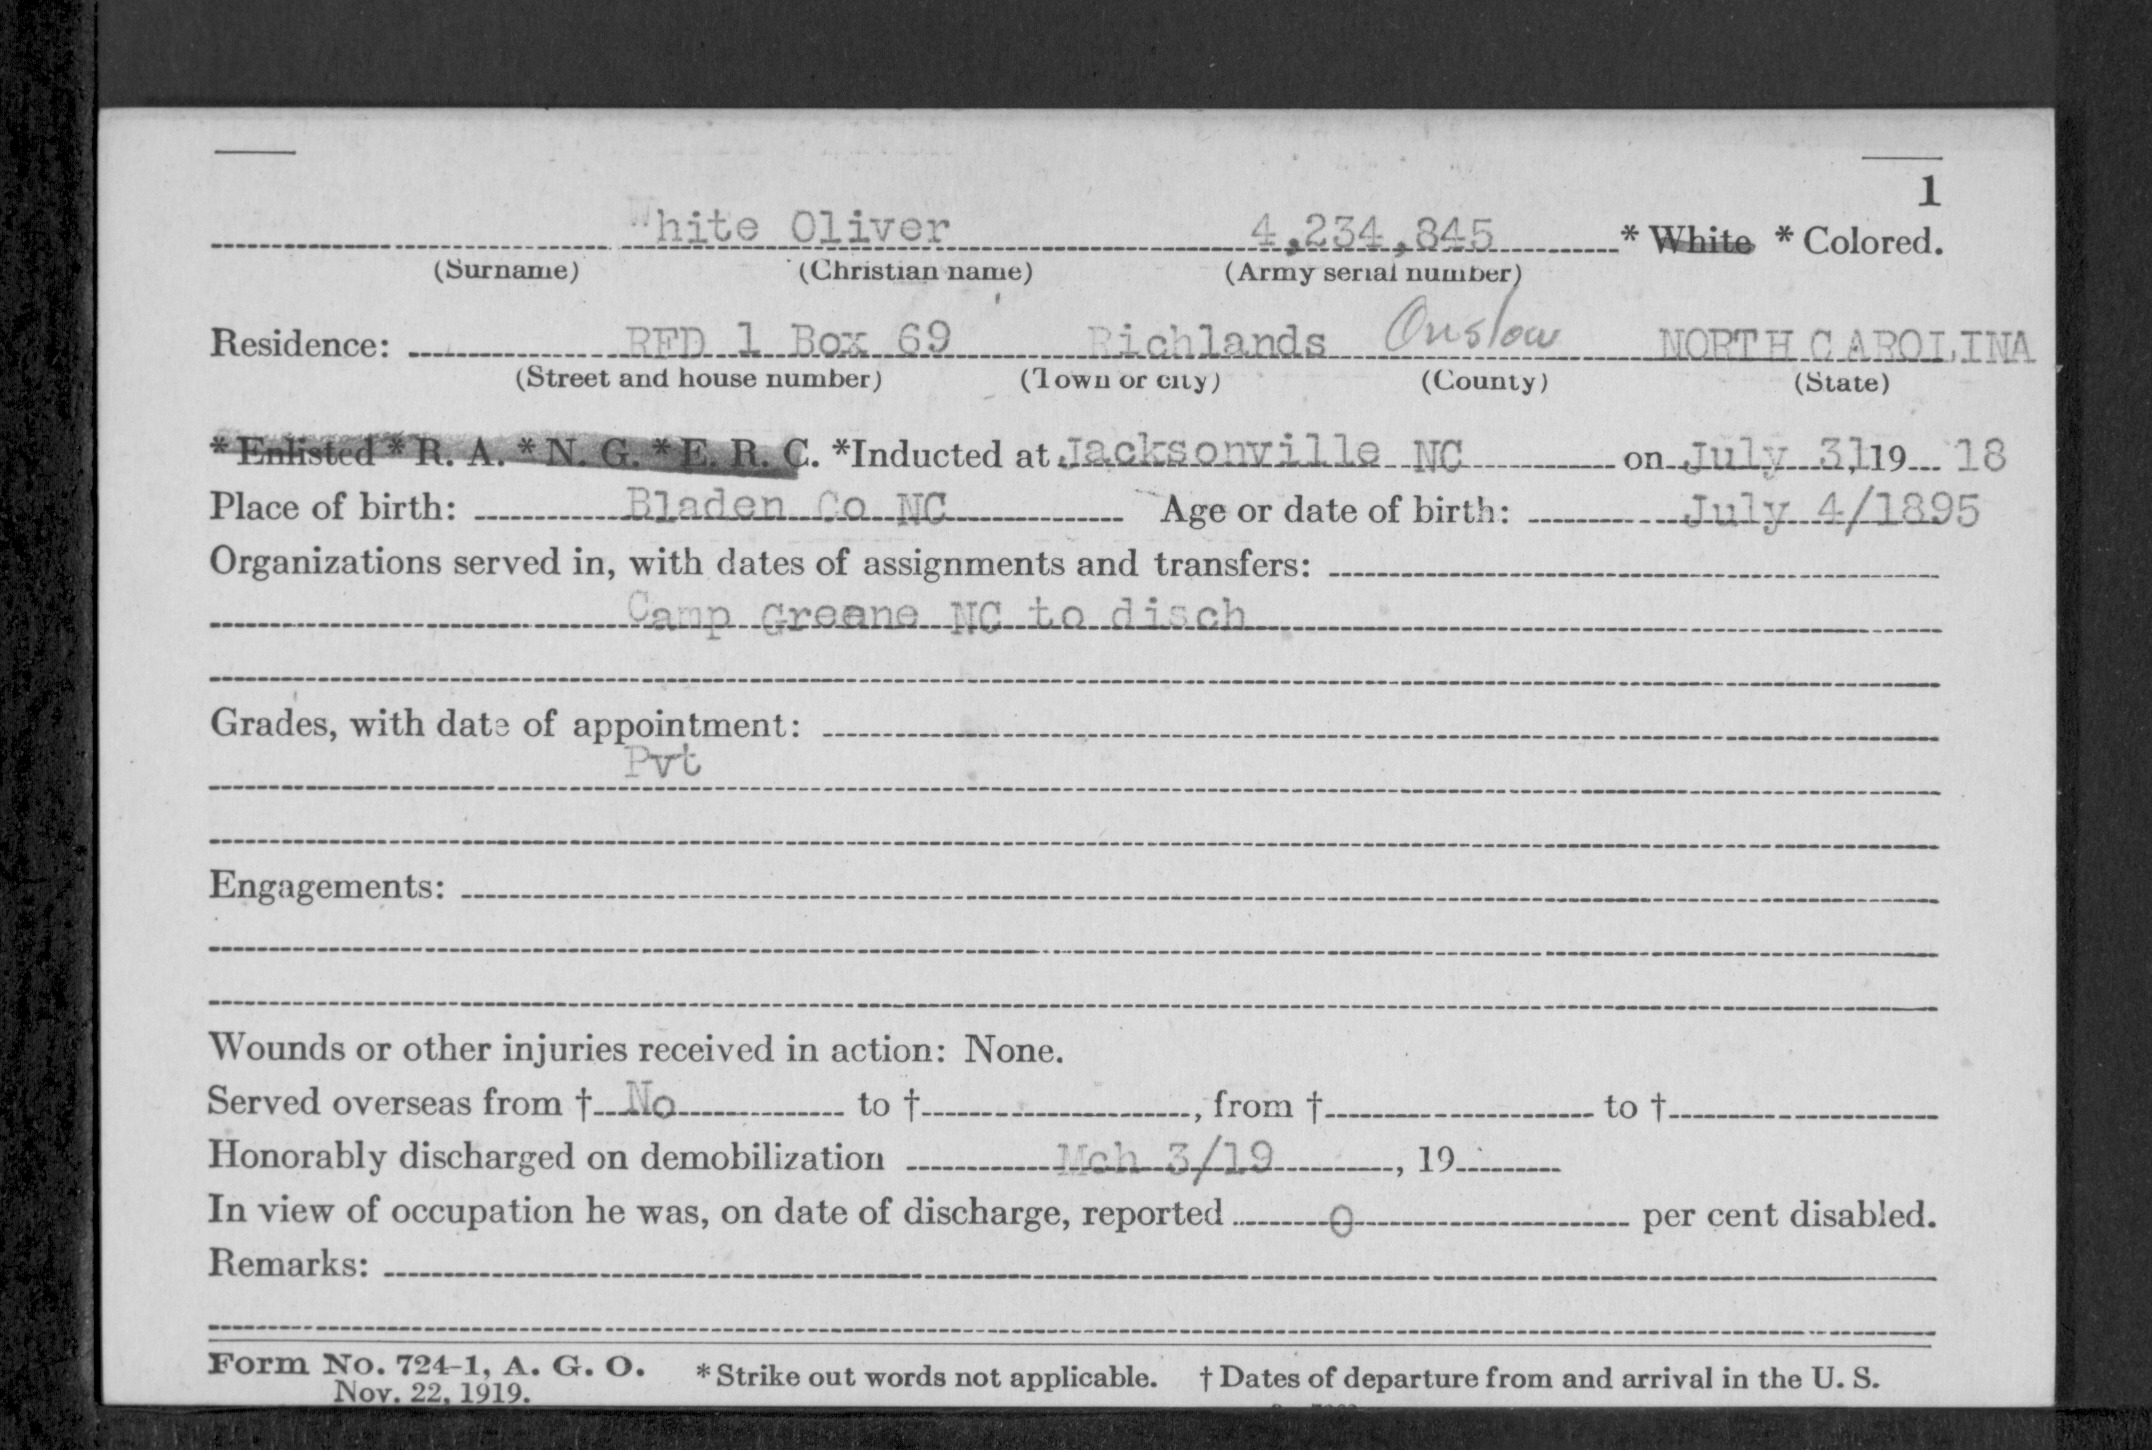 1
White Oliver 4,234,845 * White * Colored.
(Surname) (Christian name) (Army serial number)
Residence: RFD 1 Box 69 Richlands Onslow NORTH CAROLINA
(Street and house number) (Town or city) (County) (State)
* Enlisted * R. A. * N. G. * E. R. C. *Inducted at Jacksonville NC on July 31, 19 18
Place of birth: Bladen Co NC Age or date of birth: July 4/1895
Organizations served in, with dates of assignments and transfers:
Camp Greene NC to disch
Grades, with date of appointment:
Pvt
Engagements:
Wounds or other injuries received in action: None.
Served overseas from † No to †, from † to †
Honorably discharged on demobilization Mch 3/19, 19
In view of occupation he was, on date of discharge, reported 0 per cent disabled.
Remarks:
Form No. 724-1, A. G. O. * Strike out words not applicable. † Dates of departure from and arrival in the U. S.
Nov. 22, 1919.